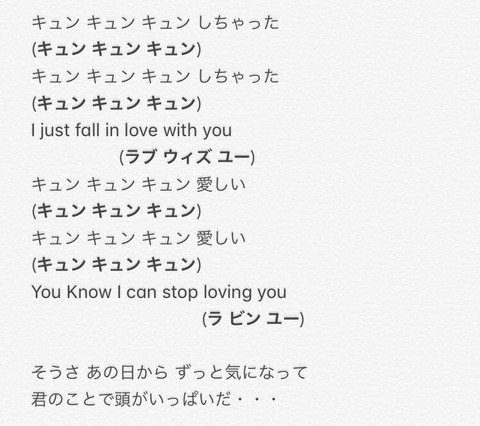 キュン キュン キュン しちゃった
(キュン キュン キュン)
キュン キュン キュン しちゃった
(キュン キュン キュン)
I just fall in love with you
(ラブ ウィズ ユー)
キュン キュン キュン 愛しい
(キュン キュン キュン)
キュン キュン キュン 愛しい
(キュン キュン キュン)
You Know I can stop loving you
(ラ ビン ユー)
そうさ あの日から ずっと気になって
君のことで頭がいっぱいだ・・・